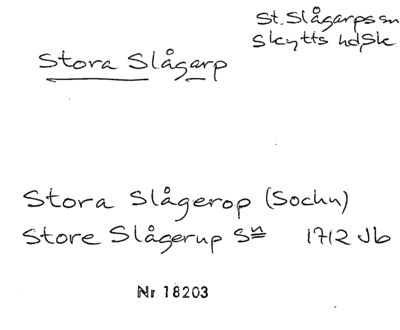 St. Slågarps sn
Skytts hd Sk
Stora Slågarp
Stora Slågerop (Sochn)
Store Slågerup Sn 1712 Jb
Nr 18203